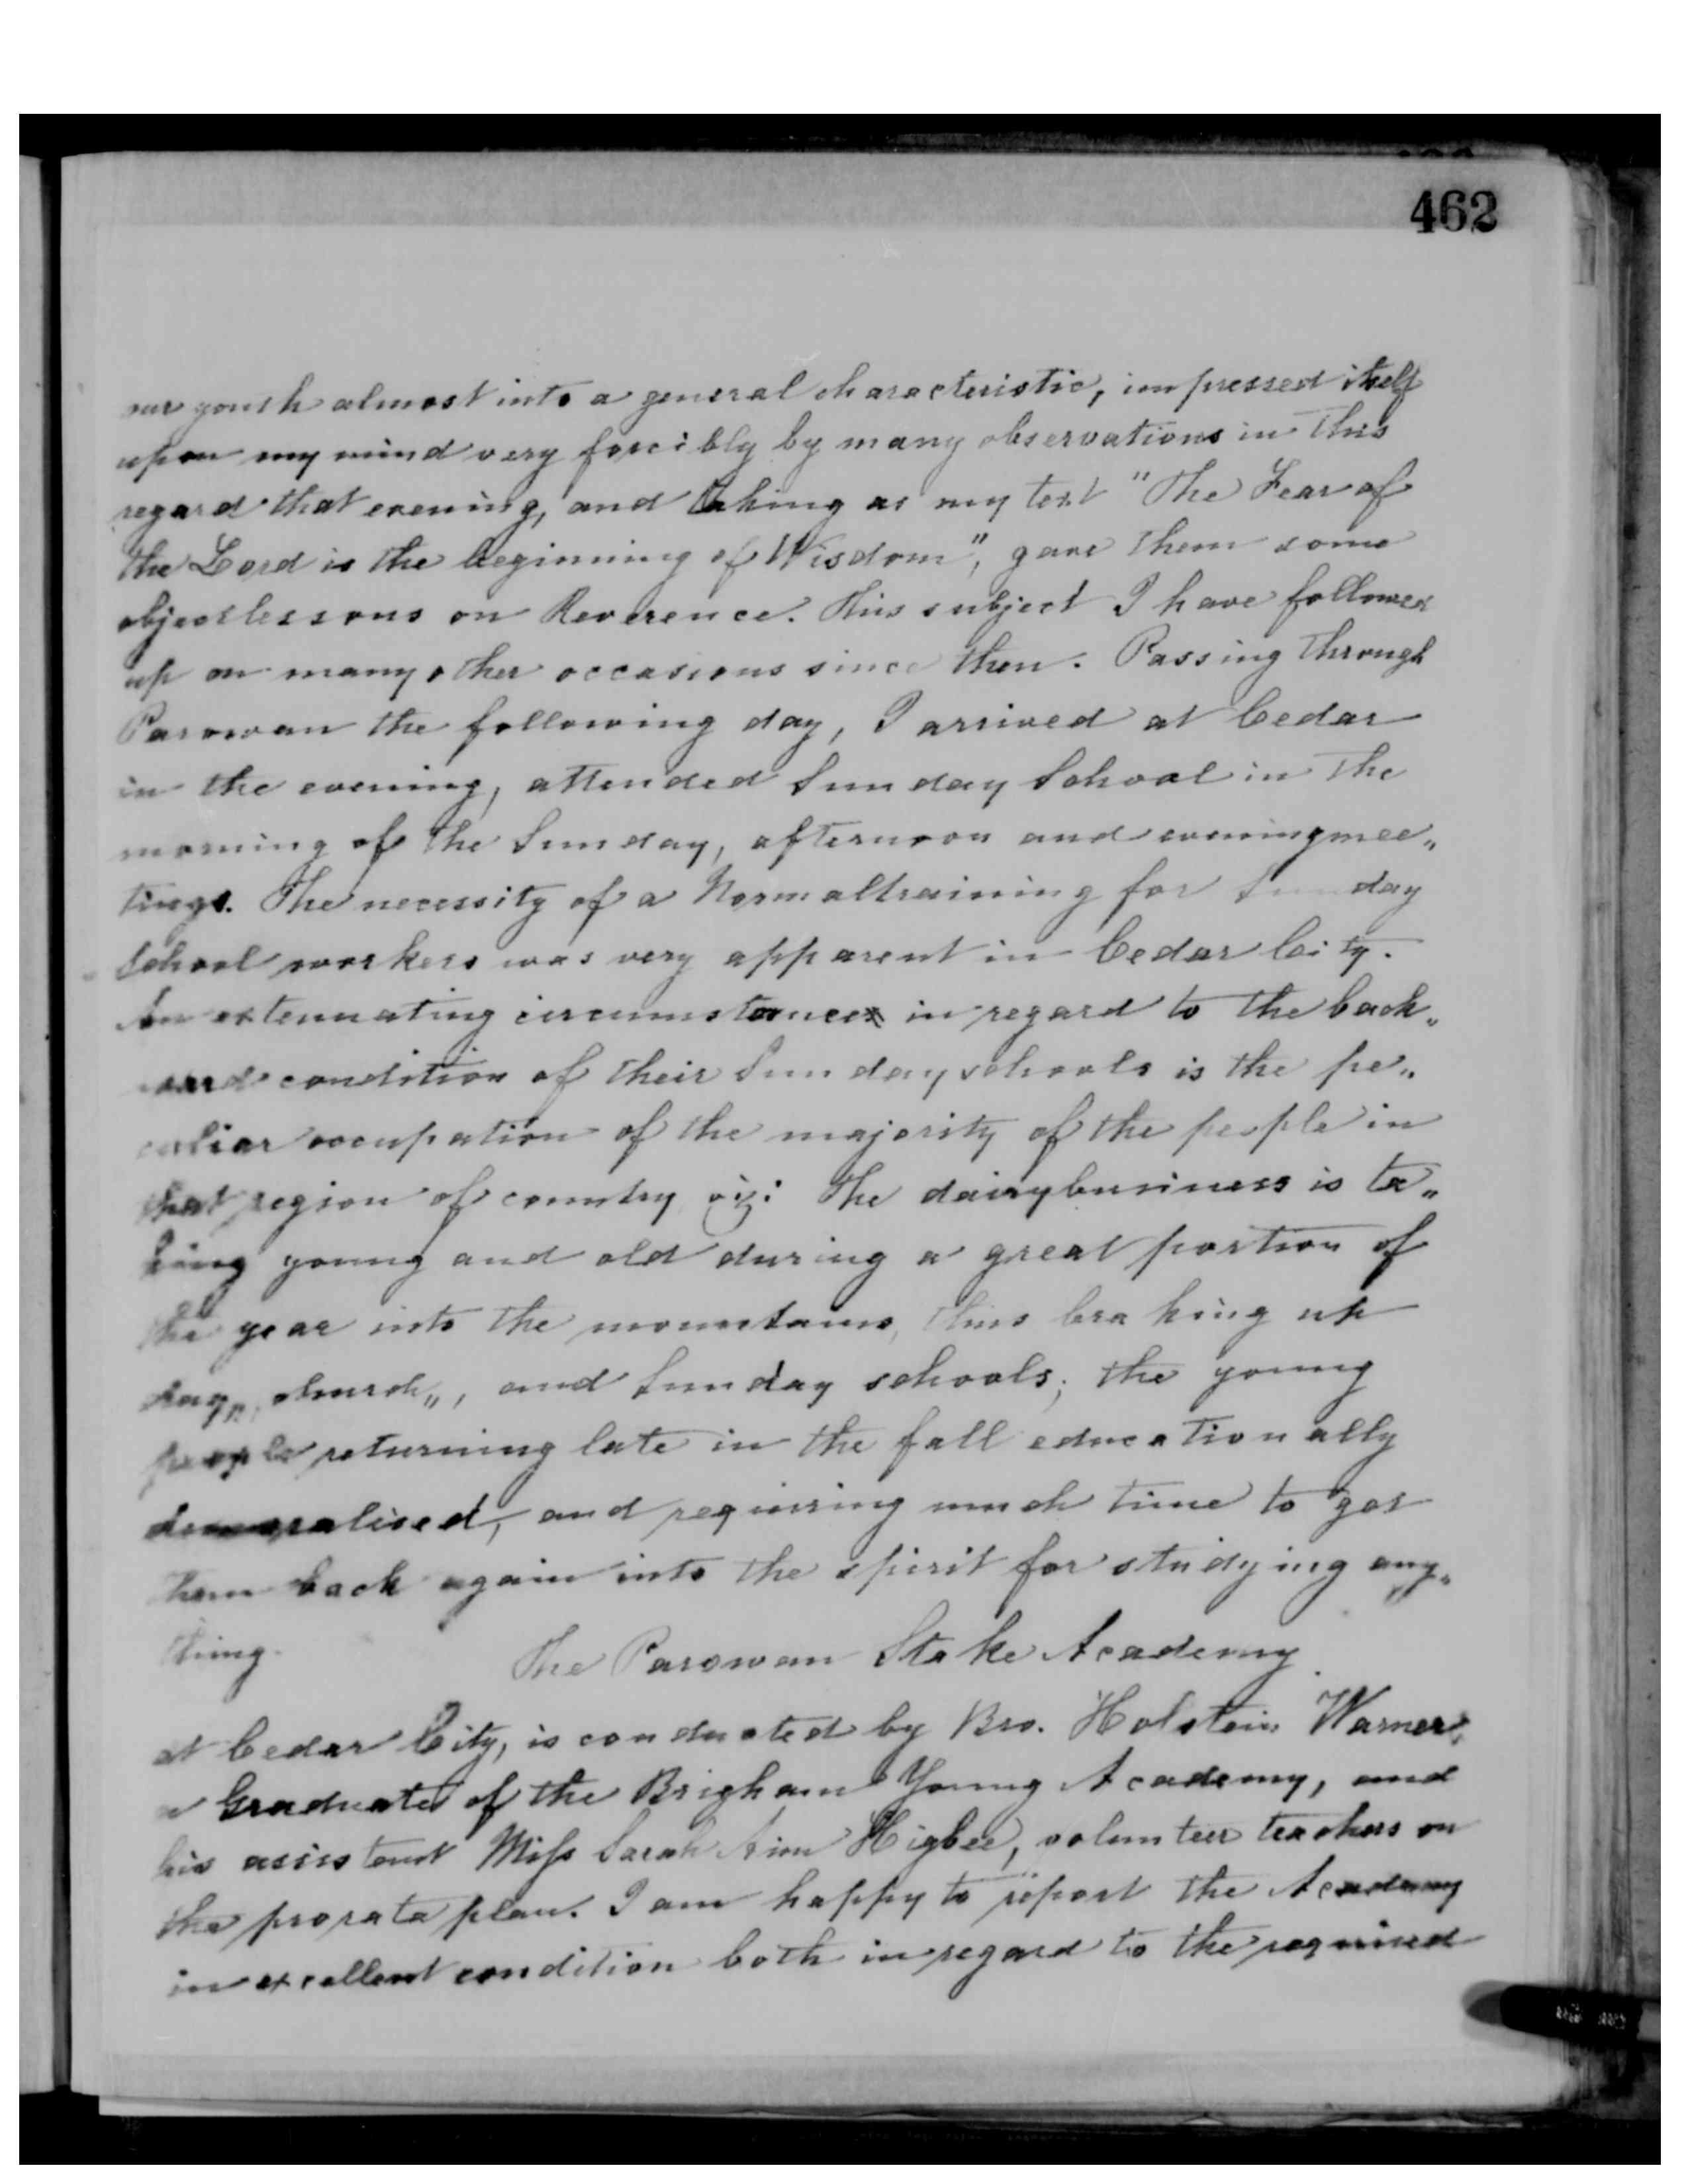 462
our youth almost into a general characteristic, impressed itself
upon my mind very forcibly by many observations in this
regard that evening, and taking as my text "The Fear of
the Lord is the beginning of Wisdom", gave them some
objectlessons on Reverence. This subject I have followed
up on many other occasions since then. Passing through
Parowan the following day, I arrived at Cedar
in the evening, attended Sunday School in the
morning of the Sunday, afternoon and eveningmee„
tings. The necessity of a Normaltraining for Sunday
School workers was very apparent in Cedar City.
An extenuating circumstance in regard to the back„
ward condition of their Sundayschools is the pe„
culiar occupation of the majority of the people in
that region of country viz: The dairybusiness is ta„
king young and old during a great portion of
the year into the mountains, thus braking up
day„, church„, and Sunday schools; the young
people returning late in the fall educationally
demoralised, and requiring much time to get
them back again into the spirit for studying any„
thing.
The Parowan Stake Academy
at Cedar City, is conducted by Bro. Holstein Warner,
a Graduate of the Brigham Young Academy, and
his assistent Miss Sarah Ann Higbee, volunteer teachers on
the prorata plan. I am happy to report the Academy
in excellent condition both in regard to the required